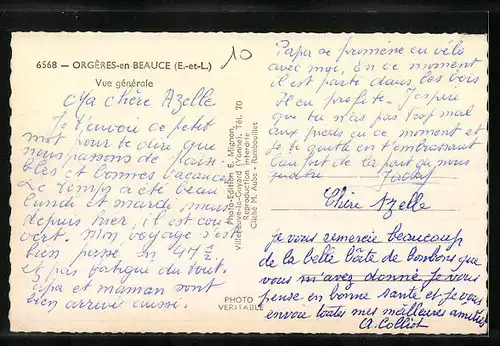 6568 — ORGÈRES-en-BEAUCE (E.-et-L.)
Vue générale
10
Ma chère Azelle
Je t'envoie ce petit
mot pour te dire que
nous passons de paisi-
bles et bonnes vacances
Le temps a été beau
lundi et mardi, mais
depuis hier, il est cou-
vert. Mon voyage s'est
bien passé en 4 H ½
et pas fatigué du tout.
Papa et maman sont
bien arrivé aussi.
Photo-Edition E. Mignon
Villeneuve-la-Guyard (Yonne), Tél. 70
Reproduction interdite
Cliché M. Aube - Rambouillet
PHOTO
VERITABLE
Papa se promène en vélo
avec moi, En ce moment
il est parti dans les bois
Il en profite. J'espère
que tu n'as pas trop mal
aux pieds en ce moment et
Je te quitte en t'embrassant
bien fort de la part de nous
quatre
Chère Azelle
Je vous remercie beaucoup
de la belle boite de bonbons que
vous m'avez donné Je vous
pense en bonne santé et Je vous
envoie toutes mes meilleures amitiés
A. Colliot